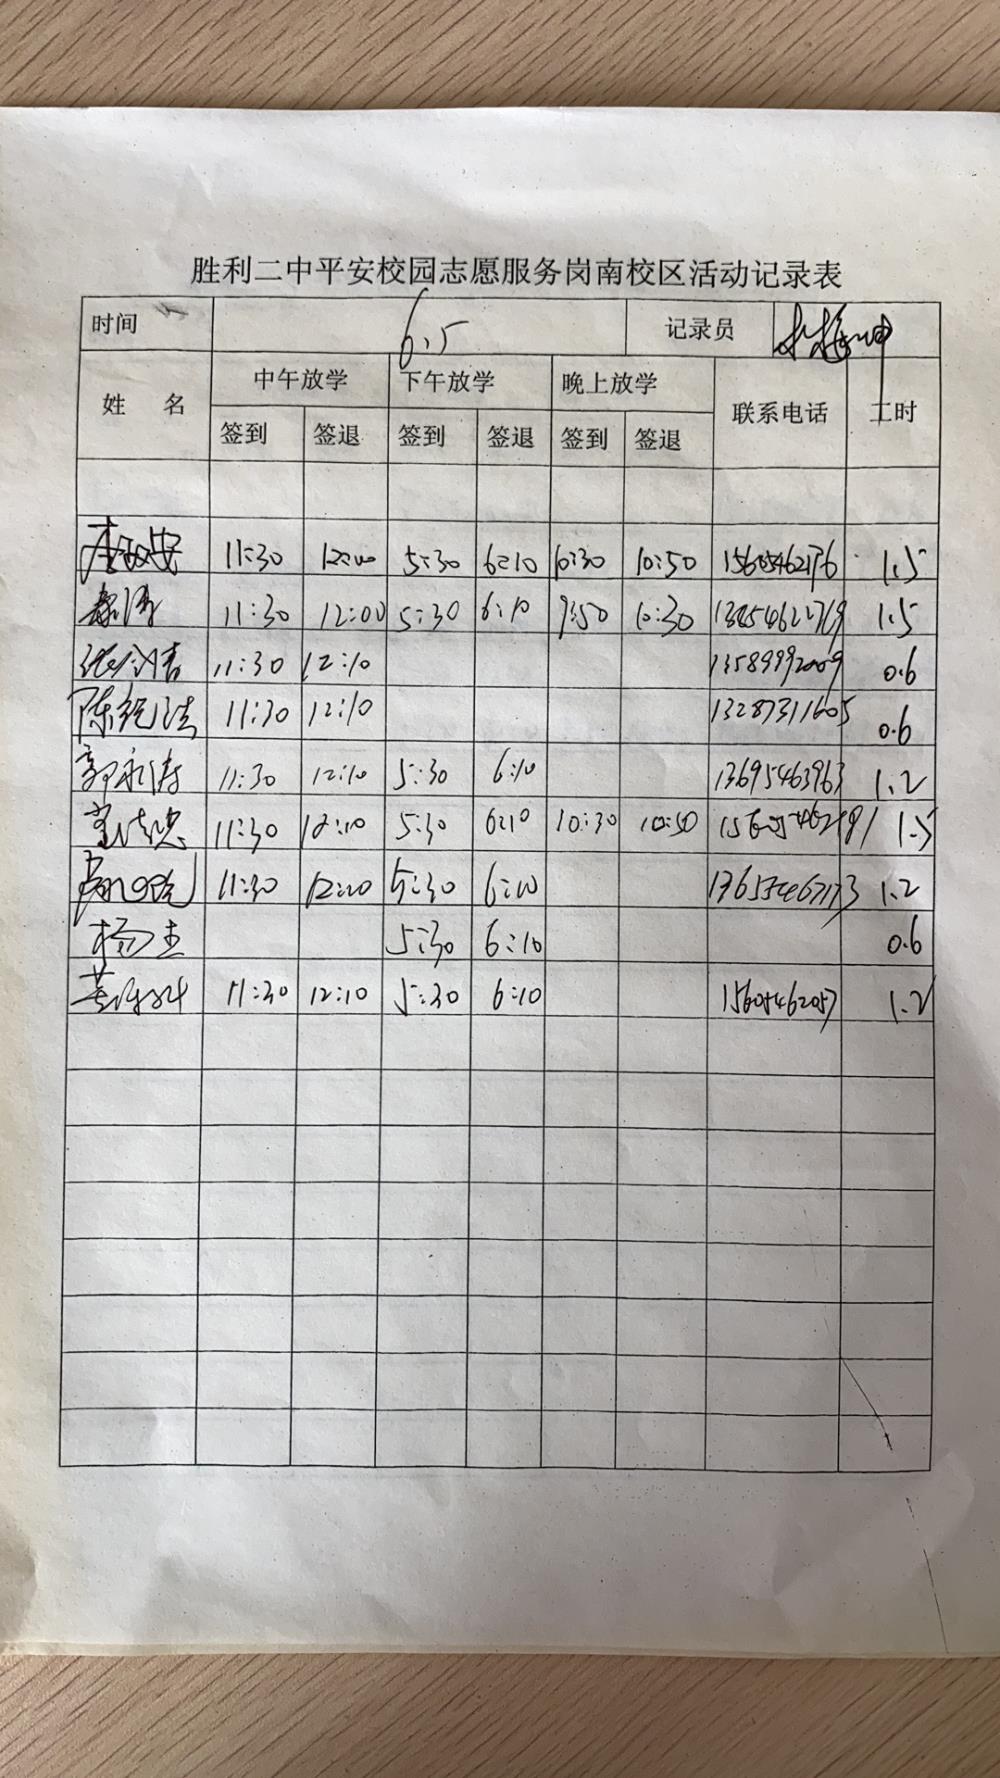 胜利二中平安校园志愿服务岗南校区活动记录表
时间 6.5 记录员
姓 名 中午放学 下午放学 晚上放学 联系电话 工时
签到 签退 签到 签退 签到 签退
11:30 12:00 5:30 6:10 10:30 10:50 15605462176 1.5
11:30 12:00 5:30 6:10 9:50 10:30 1.5
11:30 12:10 13589992009 0.6
陈 11:30 12:10 13287311605 0.6
郭永涛 11:30 12:10 5:30 6:10 13695463963 1.2
11:30 12:10 5:30 6:10 10:30 10:50 1.5
11:30 12:10 5:30 6:10 1.2
杨杰 5:30 6:10 0.6
11:30 12:10 5:30 6:10 15605462057 1.2